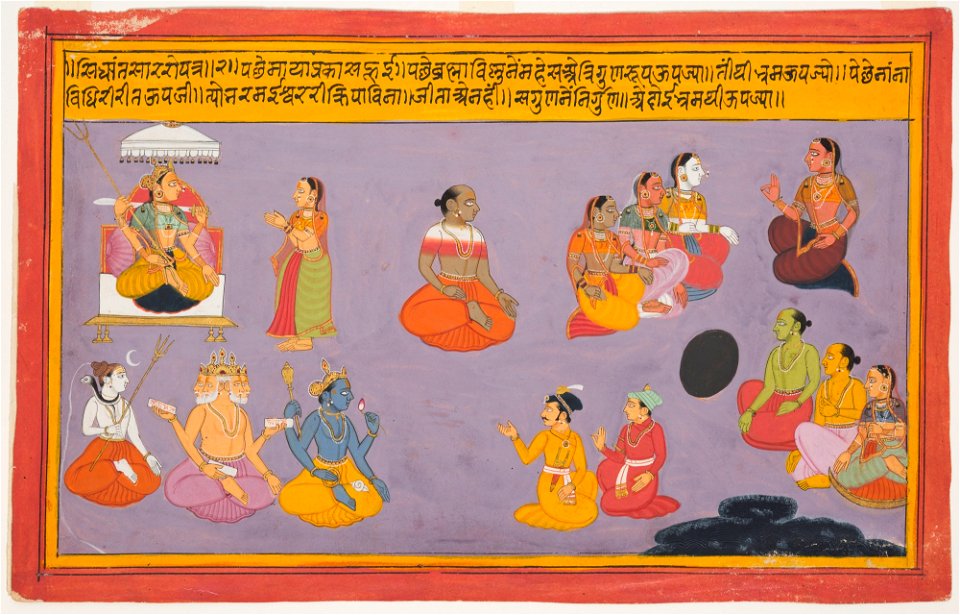 ॥सिद्धांतसाररोपत्र॥२॥पछेमायाप्रकासहुई॥पछेब्रह्माविस्नुनेंमहेसअेत्रिगुणरूपऊपज्या॥तीथीभ्रमऊपज्यो॥पछेनांना
विधिरीरीतऊपजी॥त्योनरमईश्वररीक्रिपाविना॥जीताअेनहैं॥सगुणनेंनिर्गुण॥अेदोईभ्रमथीऊपज्या॥